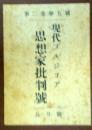 號五第卷二第
現代ブルジョア
思想家批判號
五月號